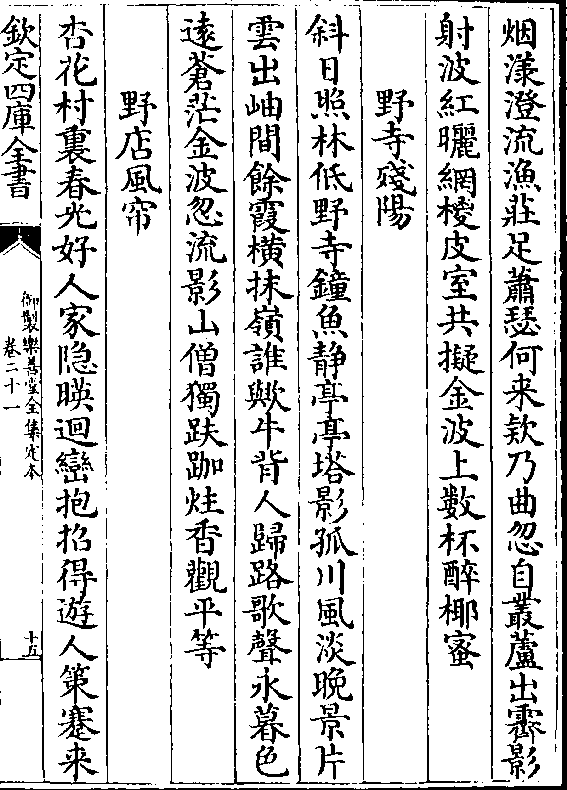 烟漾澄流漁莊足蕭瑟何来欵乃曲忽自叢蘆出霽影
射波紅曬網椶皮室共擬金波上數杯醉椰蜜
野寺殘陽
斜日照林低野寺鐘魚静亭亭塔影孤川風淡晚景片
雲出岫間餘霞横抹嶺誰歟牛背人歸路歌聲永暮色
逺蒼茫金波忽流影山僧獨趺跏炷香觀平等
野店風帘
杏花村裏春光好人家隐暎迴巒抱招得遊人策蹇来
欽定四庫全書
御製樂善堂全集定本
卷二十一
十五